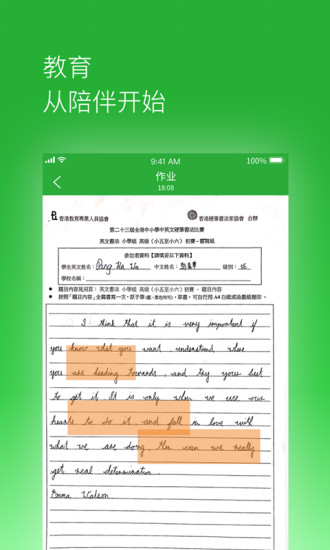 教育
从陪伴开始
9:41 AM
100%
作业
18:08
香港教育專業人員協會
香港硬筆書法家協會 合辦
第二十三屆全港中小學中英文硬筆書法比賽
英文書法 小學組 高級（小五至小六） 初賽 - 書寫紙
參加者資料【請填妥以下資料】
學生英文姓名： Pang Ka Wa 中文姓名： 級別：
學校名稱：
題目內容見另頁： 英文書法 小學組 高級（小五至小六） 初賽 - 題目內容
I think that it is very important if
you know what you want, understand where
you are heading towards, and try your best
to get it. It is only when we use our
hearts to do it, and fall in love with
what we are doing, then can we really
get real determination.
Emma Watson